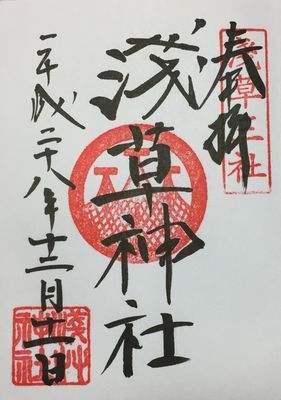 奉拝
淺草三社
浅草神社
平成二十八年十二月十一日
淺草神社